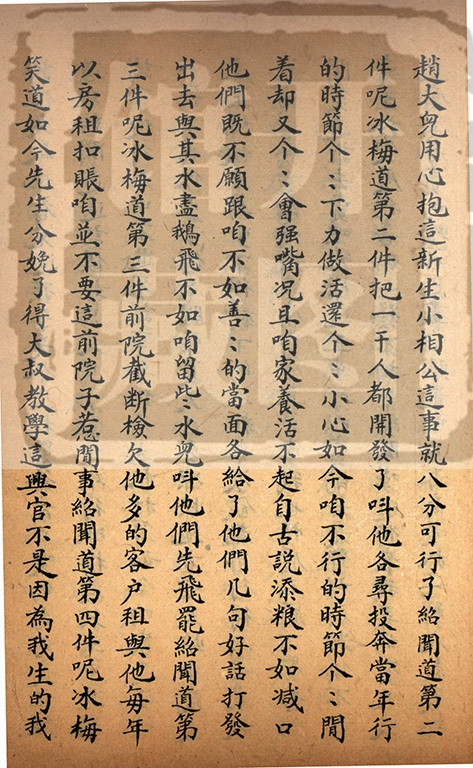 趙大兒用心抱這新生小相公這事就八分可行了紹聞道第二
件呢冰梅道第二件把一干人都開發了呌他各尋投奔當年行
的時節个〻下力做活還个〻小心如今咱不行的時節个〻閒
着却又个〻會强嘴况且咱家養活不起自古說添粮不如减口
他們既不願跟咱不如善〻的當面各給了他們几句好話打發
出去與其水盡鵝飛不如咱留些〻水兒呌他們先飛罷紹聞道第
三件呢冰梅道第三件前院截断檢欠他多的客户租與他每年
以房租扣賬咱並不要這前院子惹閒事紹聞道第四件呢冰梅
笑道如今先生分娩了得大叔教學這興官不是因為我生的我